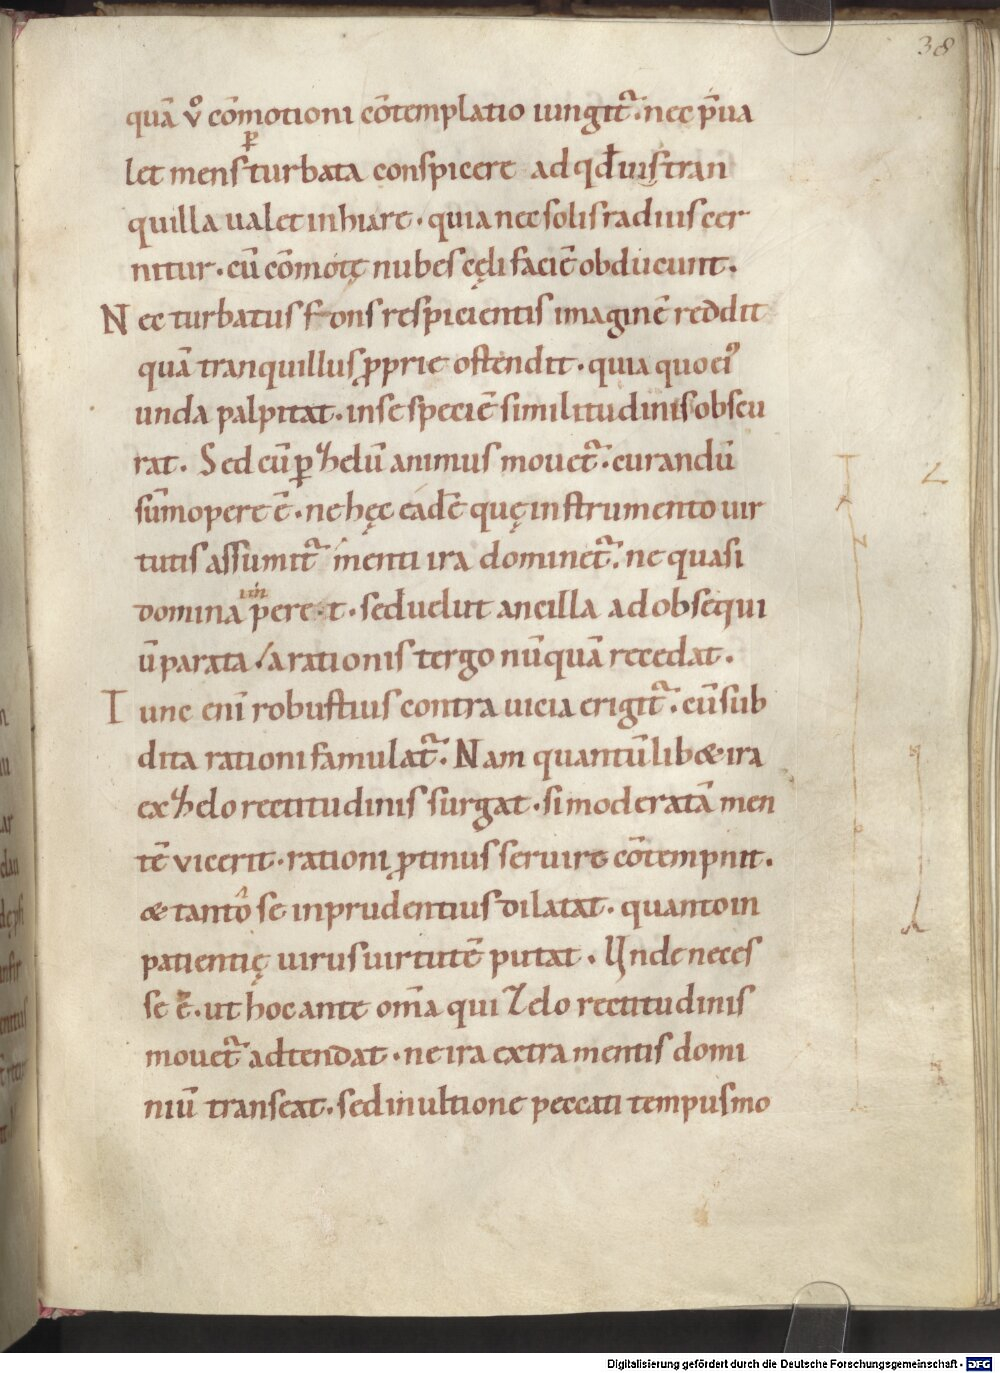 38
quā v̊ cōmotioni cōtemplatio iungit᷑. nec p̄ua
let mens ꝑturbata conspicere ad qđ uis tran
quilla ualet inhiare. quia nec solis radius cer
nitur. cū cōmotę nubes cęli faciē obducunt.
Nec turbatus fons respicientis imaginē reddit
quā tranquillus ꝓprie ostendit. quia quo ei᷒
unda palpitat. in se speciē similitudinis obscu
rat. Sed cū ꝑ zelū animus mouet᷑. curandū
sūmopere ē. ne hęc eadē quę instrumento uir
tutis assumit᷑ menti ira dominet᷑. ne quasi
domina p̄ere t. sed uelut ancilla ad obsequi
ū parata / a rationis tergo nūquā recedat.
Tunc enī robustius contra uicia erigit᷑. cū sub
dita rationi famulat᷑. Nam quantūlib& ira
ex zelo rectitudinis surgat. si moderatā men
tē vicerit. rationi ꝓtinus seruire cōtempnit.
& tanto se inprudentius dilatat. quanto in
patientię uirus uirtutē putat. Unde neces
se ē. ut hoc ante om̄a qui zelo rectitudinis
mouet᷑ adtendat. ne ira extra mentis domi
niū transeat. sed in ultione peccati tempus mo
Digitalisierung gefördert durch die Deutsche Forschungsgemeinschaft - DFG